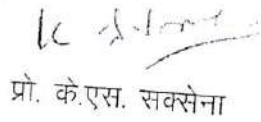 प्रो. के.एस. सक्सेना